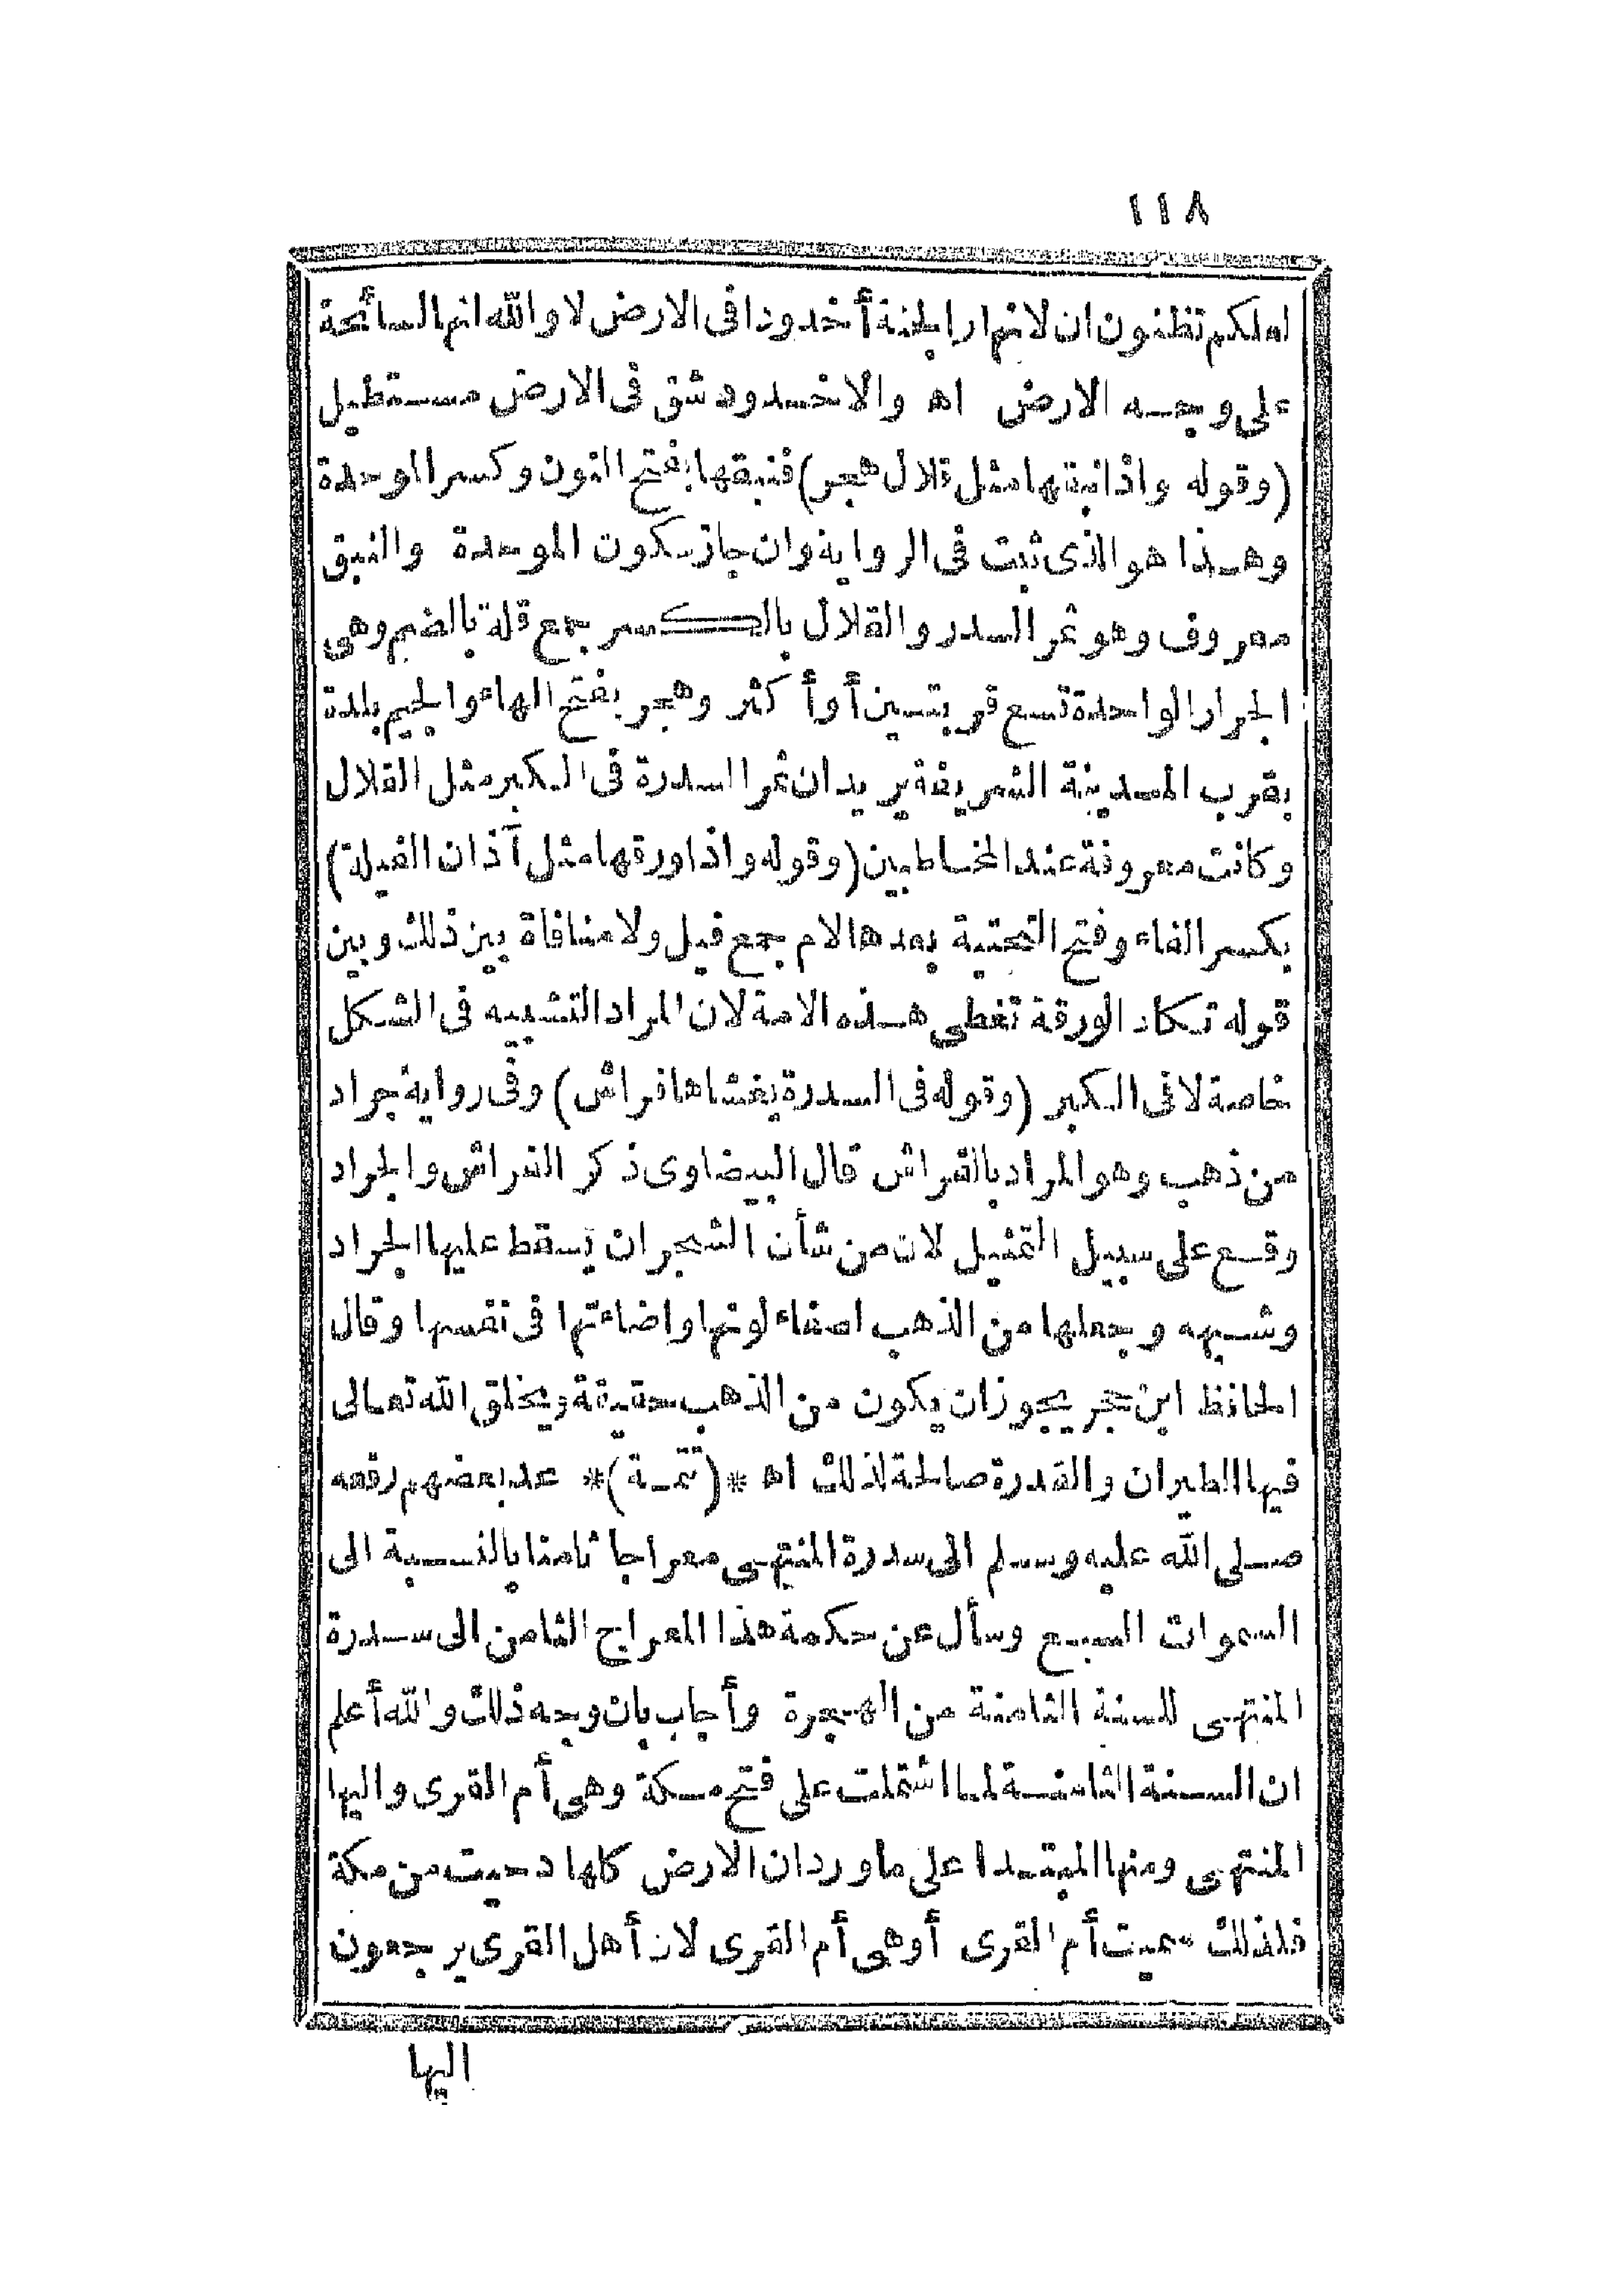 ١١٨
لعلكم تظنون ان لانهار الجنة أخدودا فى الارض لا والله انها السائحة
على وجه الارض اه والاخدود شق فى الارض مستطيل
(وقوله واذا نبقها مثل قلال هجر) فنبقها بفتح النون وكسر الموحدة
وهذا هو الذى ثبت فى الرواية وان جاز سكون الموحدة والنبق
معروف وهو ثمر السدر والقلال بالكسر جمع قلة بالضم وهى
الجرار الواحدة تسع قربتين أو أكثر وهجر بفتح الهاء والجيم بلدة
بقرب المدينة الشريفة يريد ان ثمر السدرة فى الكبر مثل القلال
وكانت معروفة عند المخاطبين (وقوله واذا ورقها مثل آذان الفيلة)
بكسر الفاء وفتح التحتية بعدها لام جمع فيل ولا منافاة بين ذلك وبين
قوله تكاد الورقة تغطى هذه الامة لان المراد التشبيه فى الشكل
خاصة لا فى الكبر (وقوله فى السدرة يغشاها فراش) وفى رواية جراد
من ذهب وهو المراد بالفراش قال البيضاوى ذكر الفراش والجراد
وقع على سبيل التمثيل لان من شأن الشجر ان يسقط عليها الجراد
وشبهه وجعلها من الذهب لصفاء لونها واضاءتها فى نفسها وقال
الحافظ ابن حجر يجوز ان يكون من الذهب حقيقة ويخلق الله تعالى
فيها الطيران والقدرة صالحة لذلك اه *(تتمة)* عد بعضهم رفعه
صلى الله عليه وسلم الى سدرة المنتهى معراجا ثامنا بالنسبة الى
السموات السبع وسأل عن حكمة هذا المعراج الثامن الى سدرة
المنتهى للسنة الثامنة من الهجرة وأجاب بان وجه ذلك والله أعلم
ان السنة الثامنة لما اشتملت على فتح مكة وهى أم القرى واليها
المنتهى ومنها المبتدا على ما ورد ان الارض كلها دحيت من مكة
فلذلك سميت أم القرى أو هى أم القرى لان أهل القرى يرجعون
اليها